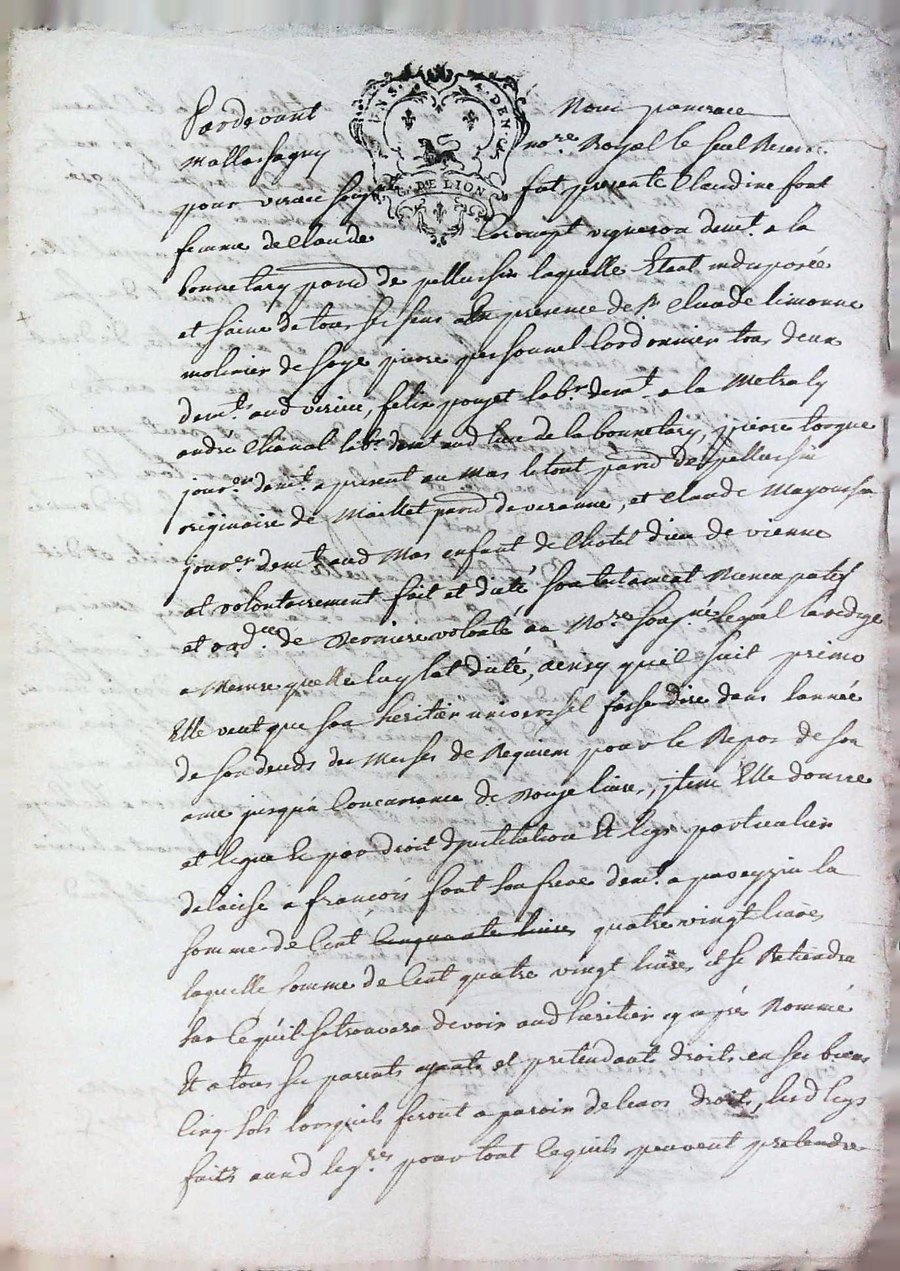 UNS. 4. DEN
G. DE LION
Pardevant Nous pancrace
Mallassagny nore Royal le seul Reservé
pour virieu soussigné fut presente Claudine font
femme de Claude vigneron demt. a la
bonnetary paroisse de pellussin laquelle Etant indisposée
et saine de tous ses sens a En presence de Sr Claude limonne
molinier de soye pierre personnel Cordonnier tous deux
demts. aud virieu, felix pouzet labr. demt. a la Metraly
andré Chanal labr. demt aud lieu de la bonnetary, pierre torgue
jourer demt. a present au Mas le tout paroisse de pellussin
originaire de Maillet paroisse de veranne, et Claude
jourer demt. aud Mas enfant de Chotel dieu de vienne
et volontairement fait et dicté son testament Nuncupatif
et ordce. de Derniere volonté au Nore. sousné. lequel la redigé
a Mesure quelle luy lat dicté, Ainsy quil suit primo
Elle veut que son heritier universel fasse dire dans lannée
de son deceds des Messes de Requiem pour le Repos de son
ame jusqua Concurrance de Douze livres, jtem Elle donne
et legue et par droit dinstitution Et legs particulier
delaisse a françois font son frere demt. a paveyzin la
somme de Cent Cinquante livres quatre vingt livres
laquelle somme de Cent quatre vingt livres il se Retiendra
sur Ce quil se trouvera devoir aud heritier cy apres Nommé
Et a tous ses parents ayants et pretendants droits en ses biens
Cinq sols lorsquils feront aparoir de leurs droits, lesd legs
faits auxd legres. pour tout Ce quils peuvent pretendre